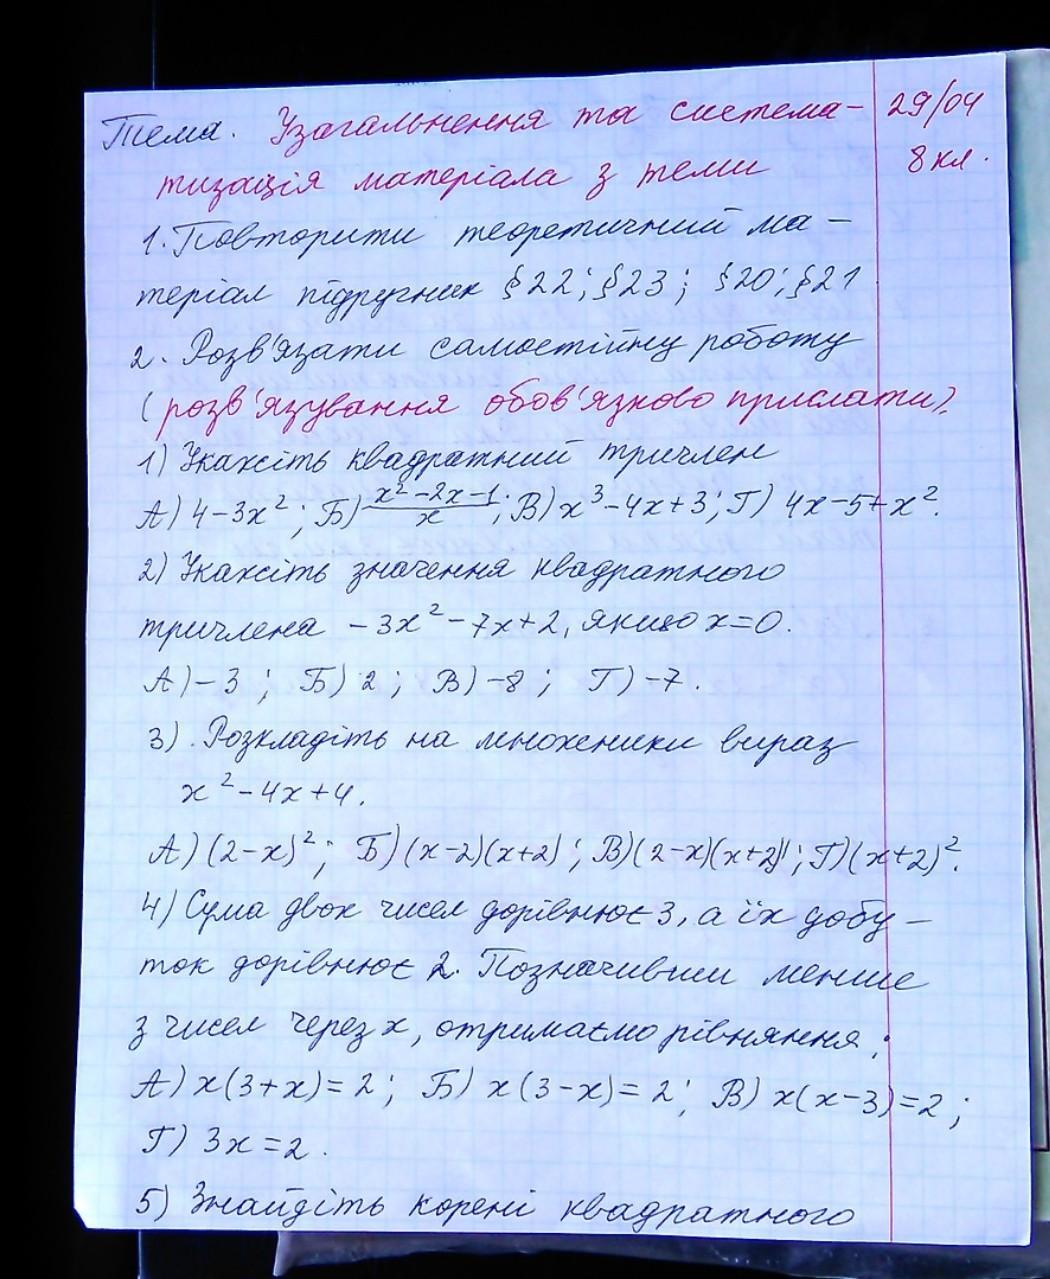 Тема. Узагальнення та система- 29/04
тизація матеріала з теми 8 кл.
1. Повторити теоретичний ма-
теріал підручник §22; §23; §20; §21
2. Розв'язати самостійну роботу
(розв'язування обов'язково прислати).
1) Укажіть квадратний тричлен
А) 4-3x²; Б) (x²-2x-1)/x; В) x³-4x+3; Г) 4x-5+x².
2) Укажіть значення квадратного
тричлена -3x²-7x+2, якщо x=0.
А) -3; Б) 2; В) -8; Г) -7.
3). Розкладіть на множники вираз
x²-4x+4.
А) (2-x)²; Б) (x-2)(x+2); В) (2-x)(x+2); Г) (x+2)².
4) Сума двох чисел дорівнює 3, а їх добу-
ток дорівнює 2. Позначивши менше
з чисел через x, отримаємо рівняння:
А) x(3+x)=2; Б) x(3-x)=2; В) x(x-3)=2;
Г) 3x=2.
5) Знайдіть корені квадратного